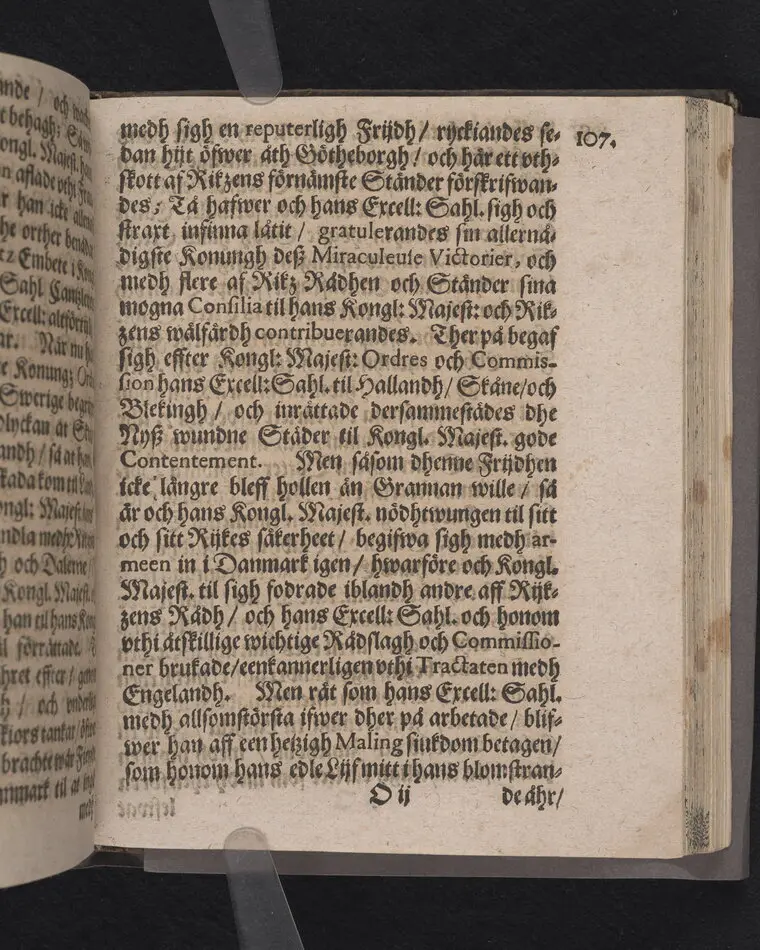 107.
medh sigh en reputerligh Frijdh / ryckiandes se-
dan hijt öfwer åth Götheborgh / och här ett vth-
skott af Rikzens förnämste Ständer förskrifwan-
des; Tå hafwer och hans Excell: Sahl. sigh och
straxt infinna låtit / gratulerandes sin allernå-
digste Konungh deß Miraculeuse Victorier, och
medh flere af Rikz Rådhen och Ständer sina
mogna Consilia til hans Kongl: Majest: och Rik-
zens wälfärdh contribuerandes. Ther på begaf
sigh effter Kongl: Majest: Ordres och Commis-
sion hans Excell: Sahl. til Hallandh / Skåne/och
Blekingh / och inrättade dersammestädes dhe
Nyß wundne Städer til Kongl. Majest. gode
Contentement. Men såsom dhenne Frijdhen
icke längre bleff hollen än Grannan wille / så
är och hans Kongl. Majest. nödhtwungen til sitt
och sitt Rijkes säkerheet / begifwa sigh medh ar-
meen in i Danmark igen / hwarföre och Kongl.
Majest. til sigh fodrade iblandh andre aff Rijk-
zens Rådh / och hans Excell: Sahl. och honom
vthi åtskillige wichtige Rådslagh och Commissio-
ner brukade/eenkannerligen vthi Tractaten medh
Engelandh. Men rät som hans Excell: Sahl.
medh allsomstörsta ifwer dher på arbetade / blif-
wer han aff een hetzigh Maling siukdom betagen/
som honom hans edle Lijf mitt i hans blomstran-
O ij de åhr/